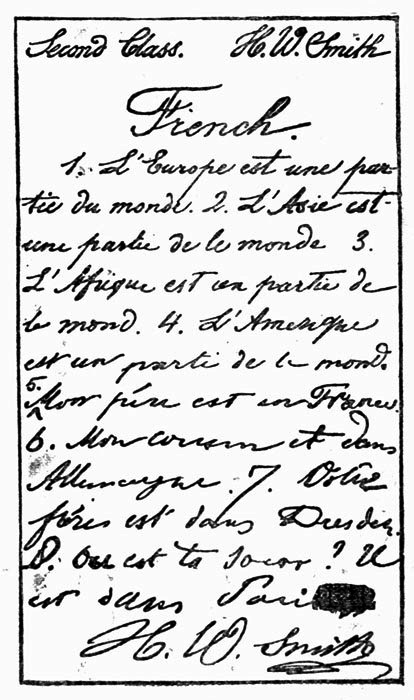 Second Class. H. W. Smith
French.
1. L'Europe est une par-
tie du monde. 2. L'Asie est
une partie de le monde 3.
L'Afrique est un partie de
le mond. 4. L'Amerique
est un parti de le mond.
5. Mon pére est en France.
6. Mon cousin et dans
Allemagne. 7. Votre
féres est dans Dresden.
8. Ou est ta soeor? Il
est dans Pari
H. W. Smith